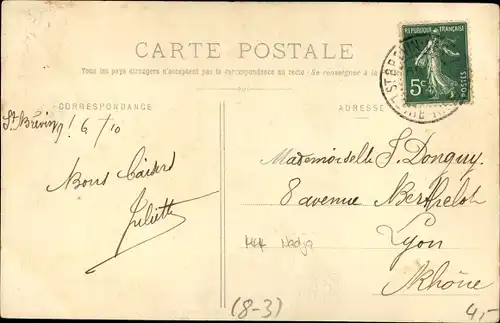 CARTE POSTALE
Tous les pays étrangers n'acceptent pas la correspondance au recto (Se renseigner à la
CORRESPONDANCE
ADRESSE
RÉPUBLIQUE FRANÇAISE
5c
POSTES
St Brévin 9/6/10
Bons baisers
Juliette
Mademoiselle J. Donguy
8 avenue Berthelot
Lyon
Rhône
Nadja
(8-3)
4,-